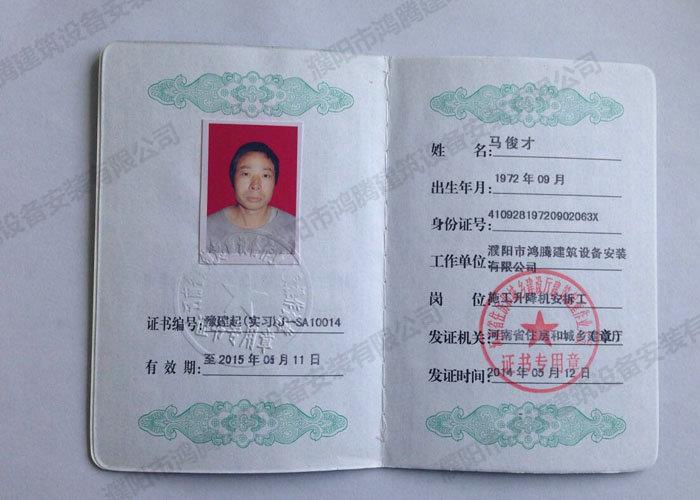 证书编号:豫建起(实习)J-SA10014
有 效 期:至 2015 年 05 月 11 日
姓 名:马俊才
出生年月:1972 年 09 月
身份证号:41092819720902063X
工作单位:濮阳市鸿腾建筑设备安装
有限公司
岗 位:施工升降机安拆工
发证机关:河南省住房和城乡建设厅
发证时间:2014 年 05 月 12 日
证书专用章
濮阳市鸿腾建筑设备安装有限公司